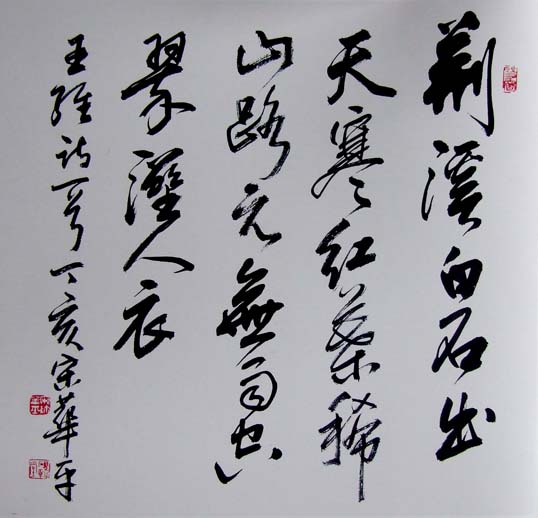 荆溪白石出
天寒红葉稀
山路元無雨空
翠溼人衣
王維诗一首丁亥宋華平